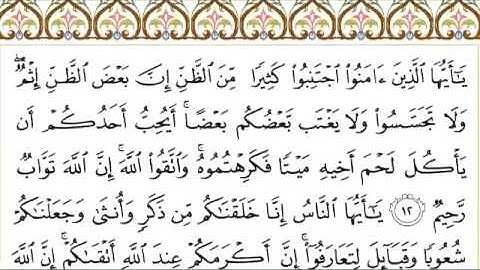 يَٰٓأَيُّهَا ٱلَّذِينَ ءَامَنُوا۟ ٱجْتَنِبُوا۟ كَثِيرًا مِّنَ ٱلظَّنِّ إِنَّ بَعْضَ ٱلظَّنِّ إِثْمٌ ۖ
وَلَا تَجَسَّسُوا۟ وَلَا يَغْتَب بَّعْضُكُم بَعْضًا ۚ أَيُحِبُّ أَحَدُكُمْ أَن
يَأْكُلَ لَحْمَ أَخِيهِ مَيْتًا فَكَرِهْتُمُوهُ ۚ وَٱتَّقُوا۟ ٱللَّهَ ۚ إِنَّ ٱللَّهَ تَوَّابٌ
رَّحِيمٌ ١٢ يَٰٓأَيُّهَا ٱلنَّاسُ إِنَّا خَلَقْنَٰكُم مِّن ذَكَرٍ وَأُنثَىٰ وَجَعَلْنَٰكُمْ
شُعُوبًا وَقَبَآئِلَ لِتَعَارَفُوٓا۟ ۚ إِنَّ أَكْرَمَكُمْ عِندَ ٱللَّهِ أَتْقَىٰكُمْ ۚ إِنَّ ٱللَّهَ